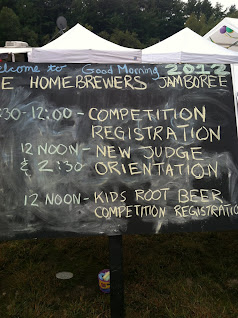 elcome to Good Morning 2012
E HOMEBREWERS JAMBOREE
30-12:00 - COMPETITION
REGISTRATION
12 NOON - NEW JUDGE
& 2:30 ORIENTATION
12 NOON - KIDS ROOT BEER
COMPETITION REGISTRATIO